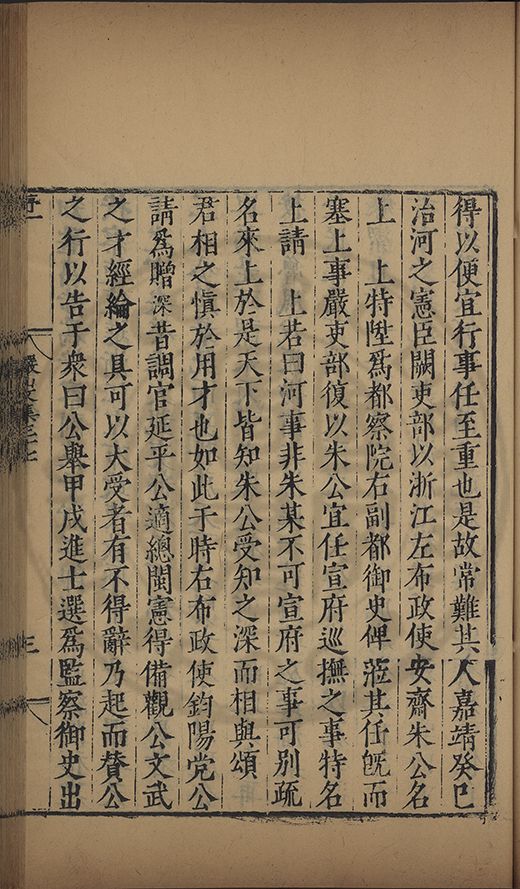 得以便宜行事任至重也是故常難其人嘉靖癸巳
治河之憲臣闕吏部以浙江左布政使安齋朱公名
上　上特陞爲都察院右副都御史俾蒞其任旣而
塞上事嚴吏部復以朱公宜任宣府巡撫之事特名
上請　上若曰河事非朱某不可宣府之事可別疏
名來上於是天下皆知朱公受知之深而相與頌
君相之愼於用才也如此于時右布政使鈞陽党公
請爲贈深昔調官延平公適總閩憲得備觀公文武
之才經綸之具可以大受者有不得辭乃起而贊公
之行以告于衆曰公舉甲戌進士選爲監察御史出
三